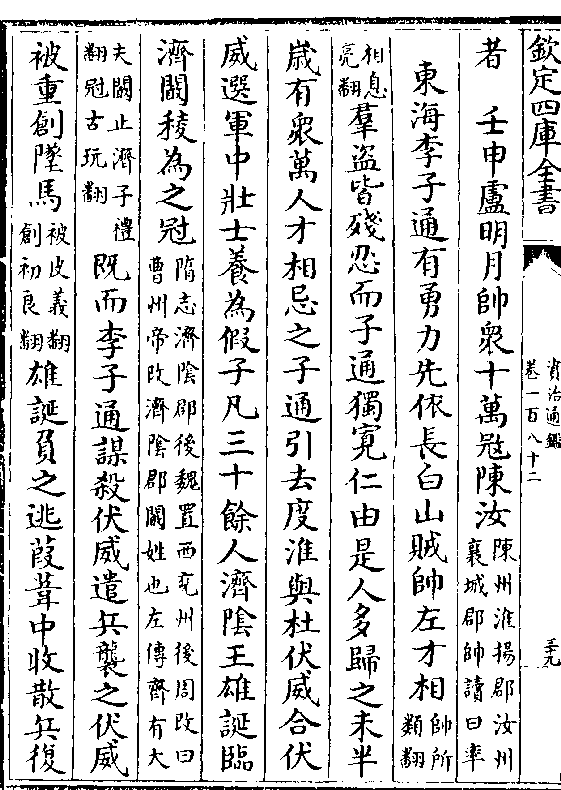 欽定四庫全書
資治通鑑
卷一百八十二
三十九
者　壬申盧明月帥衆十萬冦陳汝陳州淮揚郡汝州襄城郡帥讀曰率
東海李子通有勇力先依長白山賊帥左才相帥所類翻
相息亮翻羣盗皆殘忍而子通獨寛仁由是人多歸之未半
歳有衆萬人才相忌之子通引去度淮與杜伏威合伏
威選軍中壯士養為假子凡三十餘人濟隂王雄誕臨
濟闞稜為之冠隋志濟隂郡後魏置西兖州後周改曰曹州帝改濟隂郡闞姓也左傳齊有大
夫闞止濟子禮翻冠古玩翻既而李子通謀殺伏威遣兵襲之伏威
被重創墜馬被皮義翻創初良翻雄誕負之逃葭葦中收散兵復